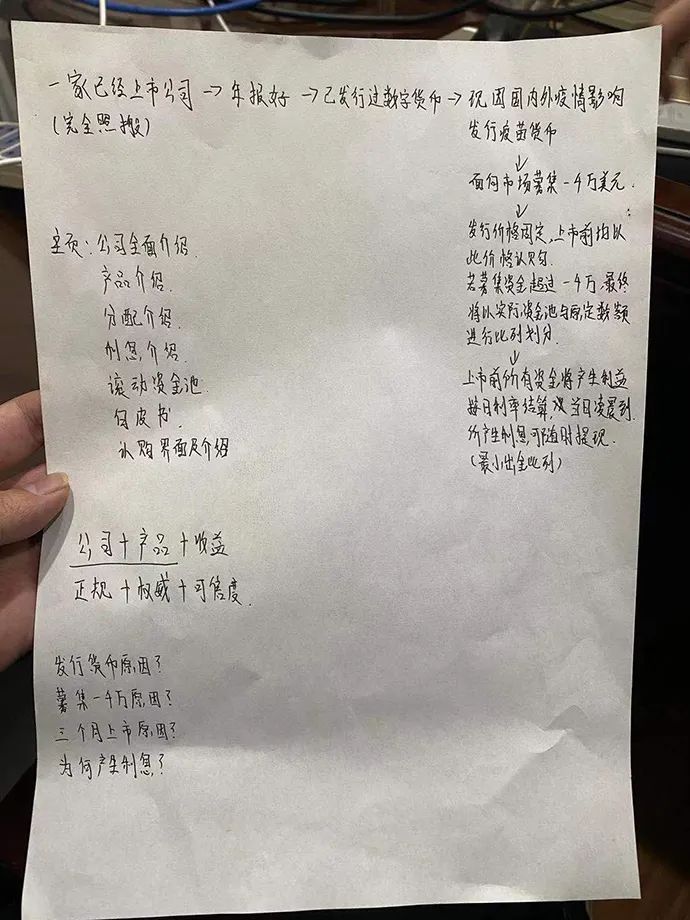 一家已经上市公司→年报好→已发行过数字货币→现因国内外疫情影响
(完全照搬)
发行疫苗货币
↓
面向市场募集一千万美元.
↓
发行价格固定,上市前均以
此价格认购.
若募集资金超过一千万,最终
将以实际资金池与原定数额
进行比列划分.
↓
上市前所有资金将产生利益
每日利率结算,次当日凌晨到.
所产生利息,可随时提现.
(最小出金比列)
主页:公司全面介绍.
产品介绍.
分配介绍.
利息介绍.
滚动资金池.
白皮书.
认购界面及介绍
公司+产品+收益
正规+权威+可信度.
发行货币原因?
募集一千万原因?
三个月上市原因?
为何产生利息?